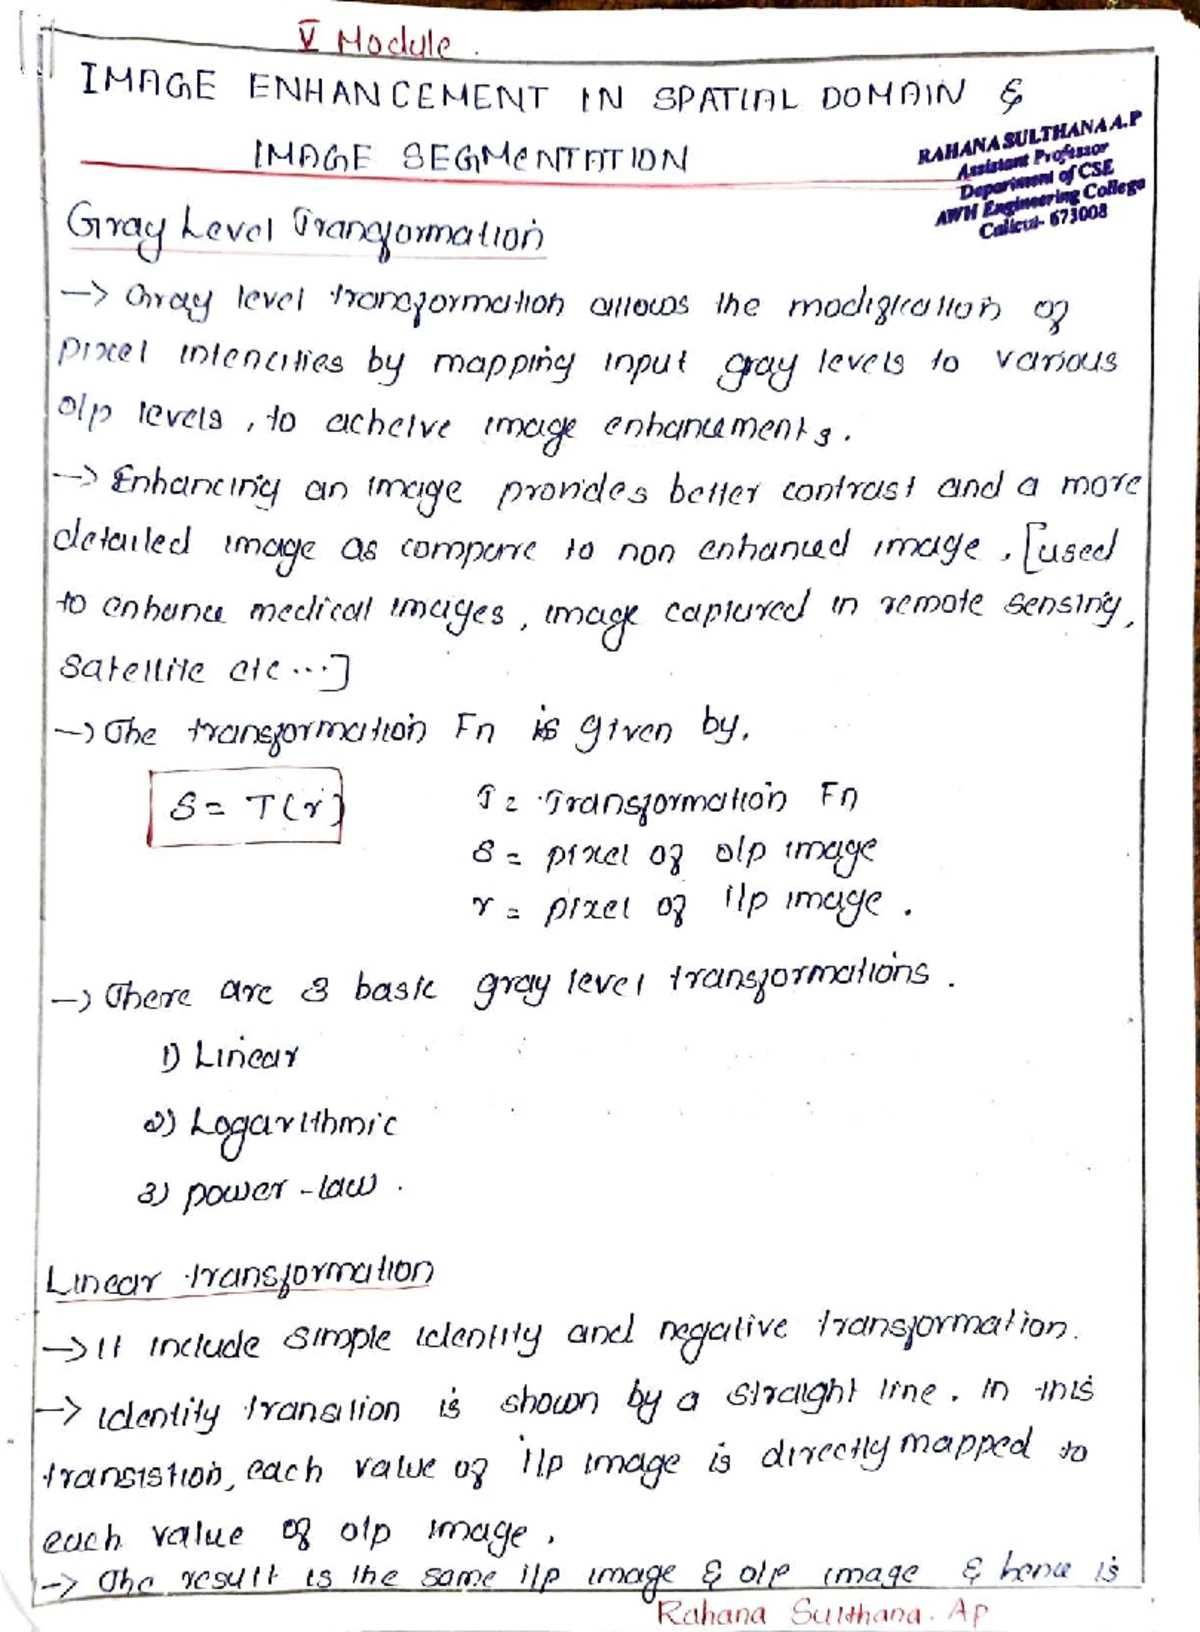 V Module.
IMAGE ENHANCEMENT IN SPATIAL DOMAIN &
IMAGE SEGMENTATION
RAHANA SULTHANA A.P
Assistant Professor
Department of CSE
AWH Engineering College
Calicut- 673008
Gray Level Transformation
-> Gray level transformation allows the modification of
pixel intencities by mapping input gray levels to various
o/p levels, to acheive image enhancements.
-> Enhancing an image provides better contrast and a more
detailed image as compare to non enhanced image. [used
to enhance medical images, image captured in remote sensing,
satellite etc ...]
-> The transformation Fn is given by,
S = T(r)
T = Transformation Fn
S = pixel of o/p image
r = pixel of i/p image.
-> There are 3 basic gray level transformations.
1) Linear
2) Logarithmic
3) power-law.
Linear transformation
-> It include simple identity and negative transformation.
-> identity transition is shown by a straight line. in this
transistion, each value of i/p image is directly mapped to
each value of o/p image.
-> The result is the same i/p image & o/p image & hence is
Rahana Sulthana. AP